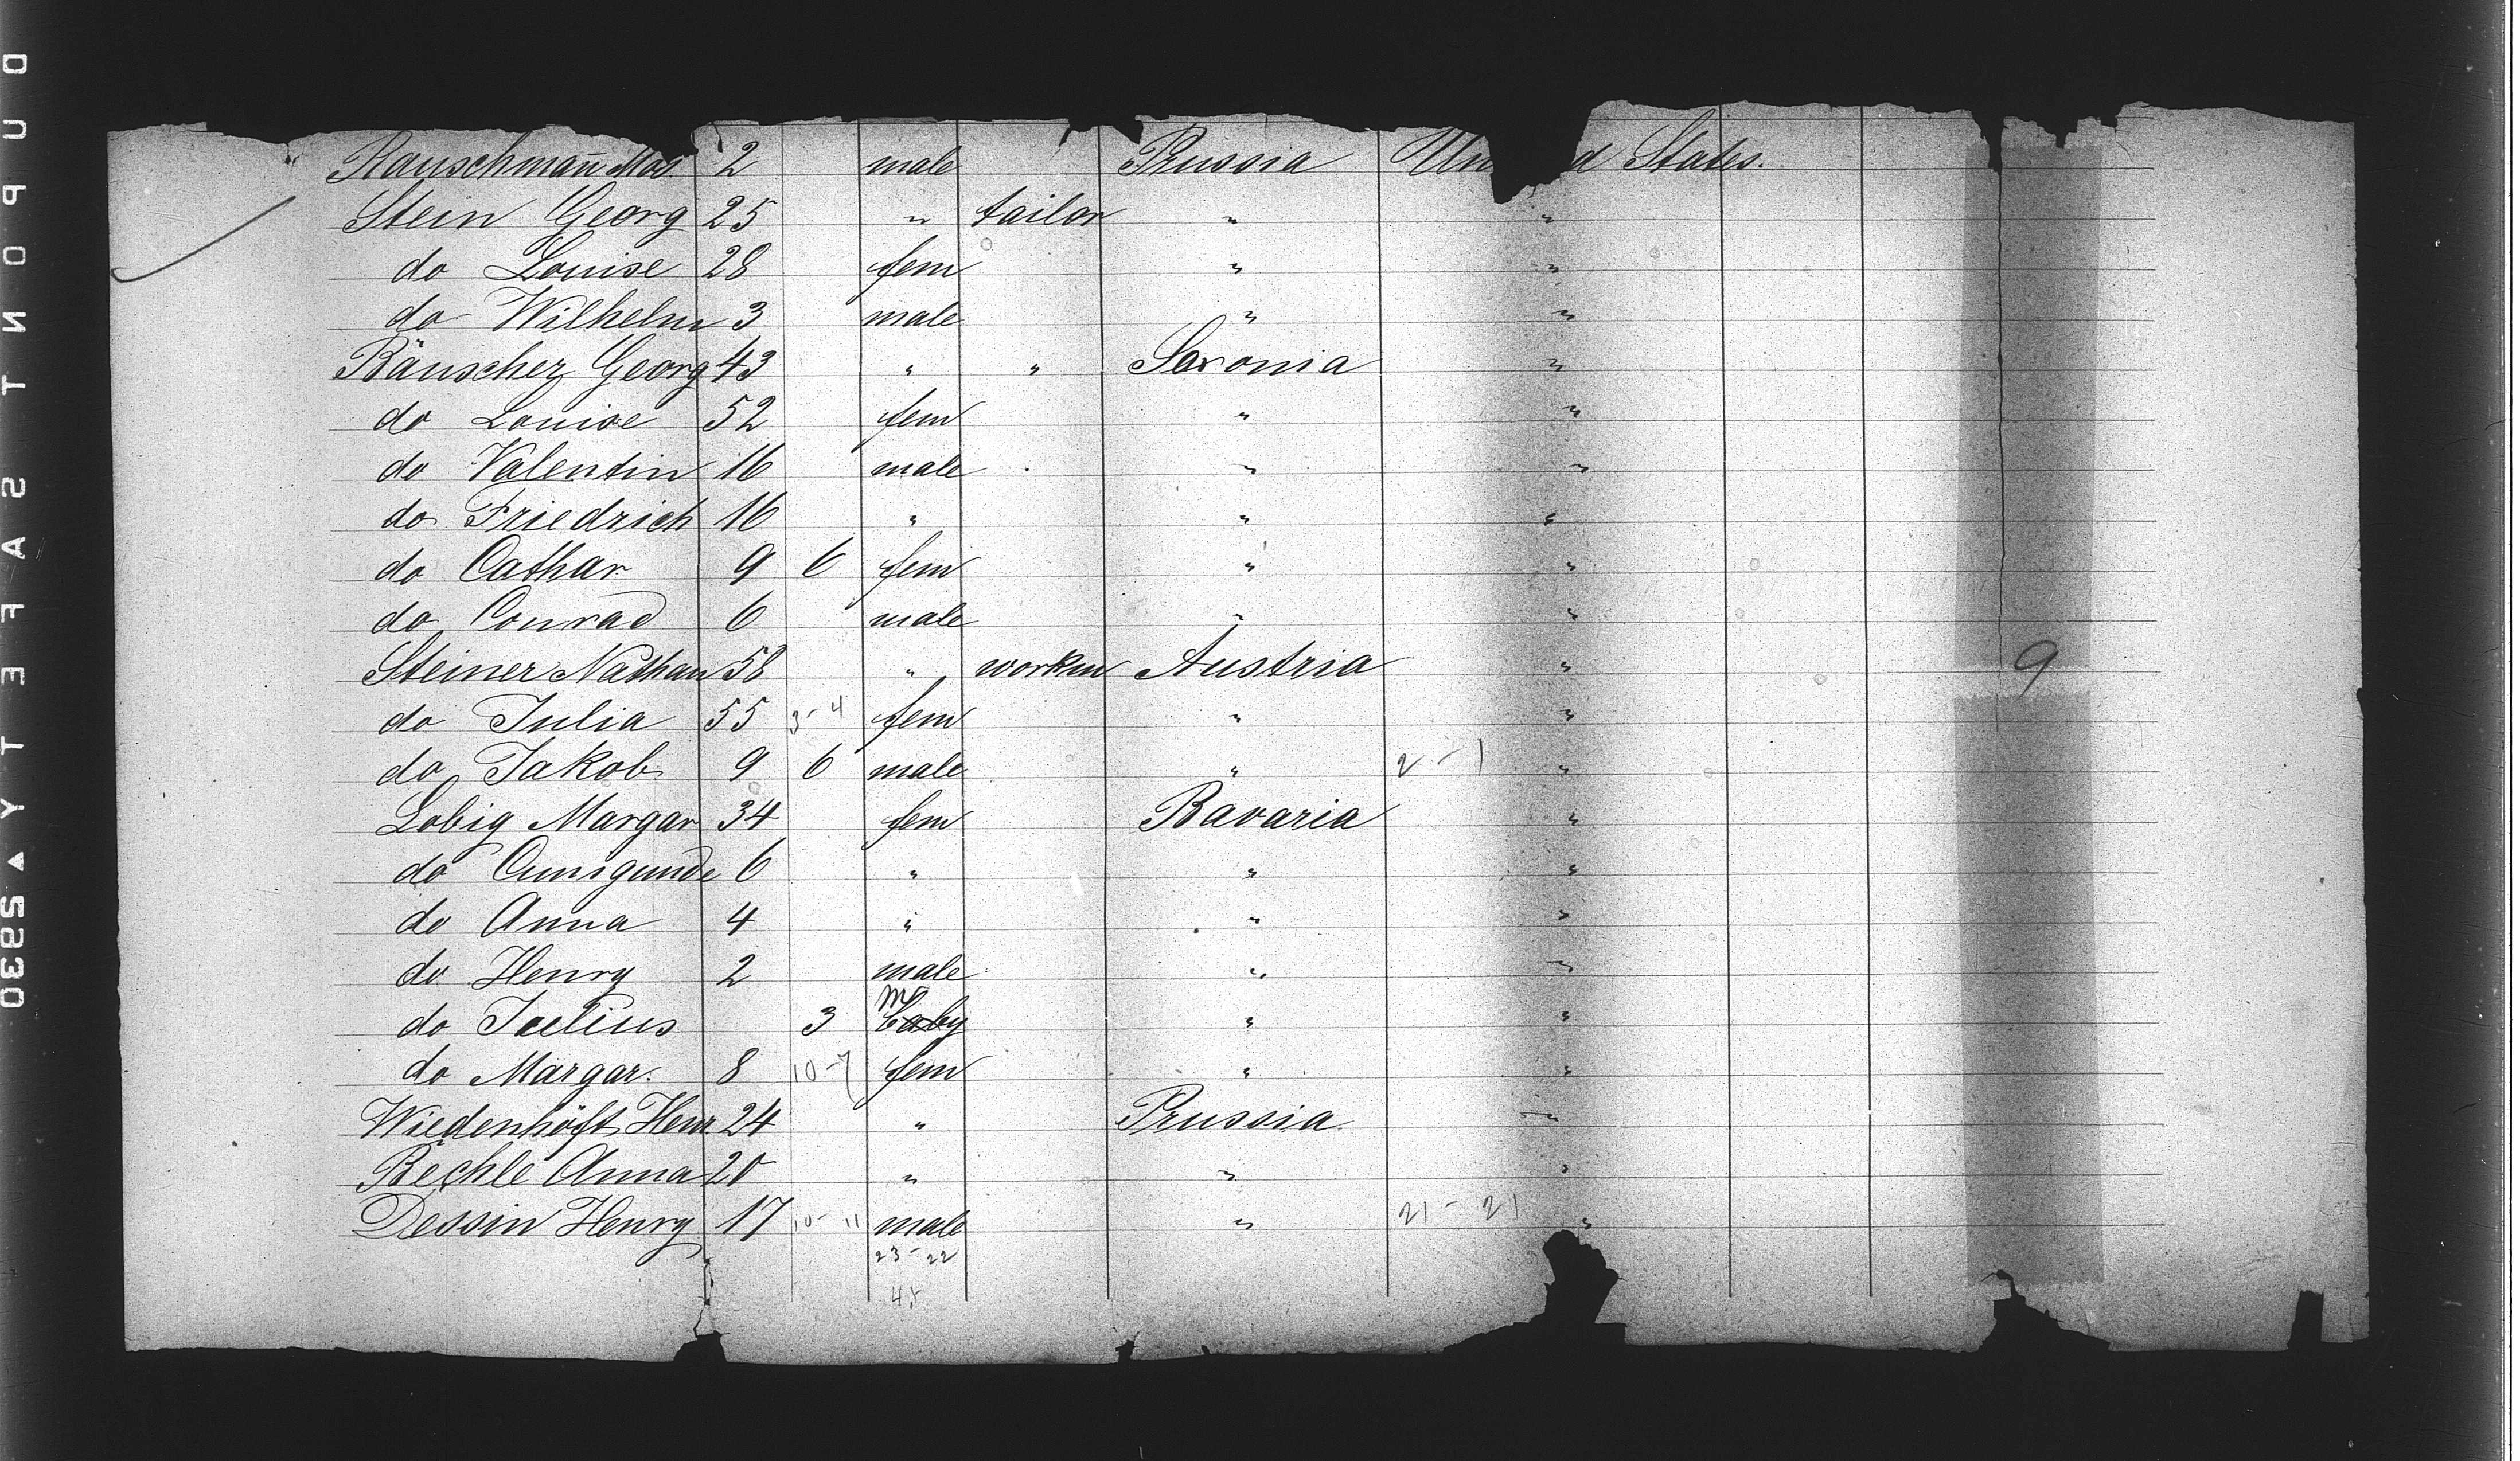 Rauschman̄ Max 2 male Prussia Un d States.
Stein Georg 25 " tailor " "
do Louise 28 fem " "
do Wilhelm 3 male " "
Räuscher Georg 43 " " Saxonia "
do Louise 52 fem " "
do Valentin 16 male " "
do Friedrich 16 " " "
do Cathar 9 6 fem " "
do Conrad 6 male " "
Steiner Nathan 58 " workm Austria " 9
do Julia 55 3-4 fem " "
do Jakob 9 6 male " 2-1 "
Lobig Margar 34 fem Bavaria "
do Cunigunde 6 " " "
do Anna 4 " " "
do Henry 2 male " "
m
do Julius 3 baby " "
do Margar. 8 10-7 fem " "
Wiedenhöft Henr 24 " Prussia "
Bechle Anna 20 " " "
Dessin Henry 17 10-11 male " 21-21 "
23-22
45
DUPONT SAFETY ▲ S2930